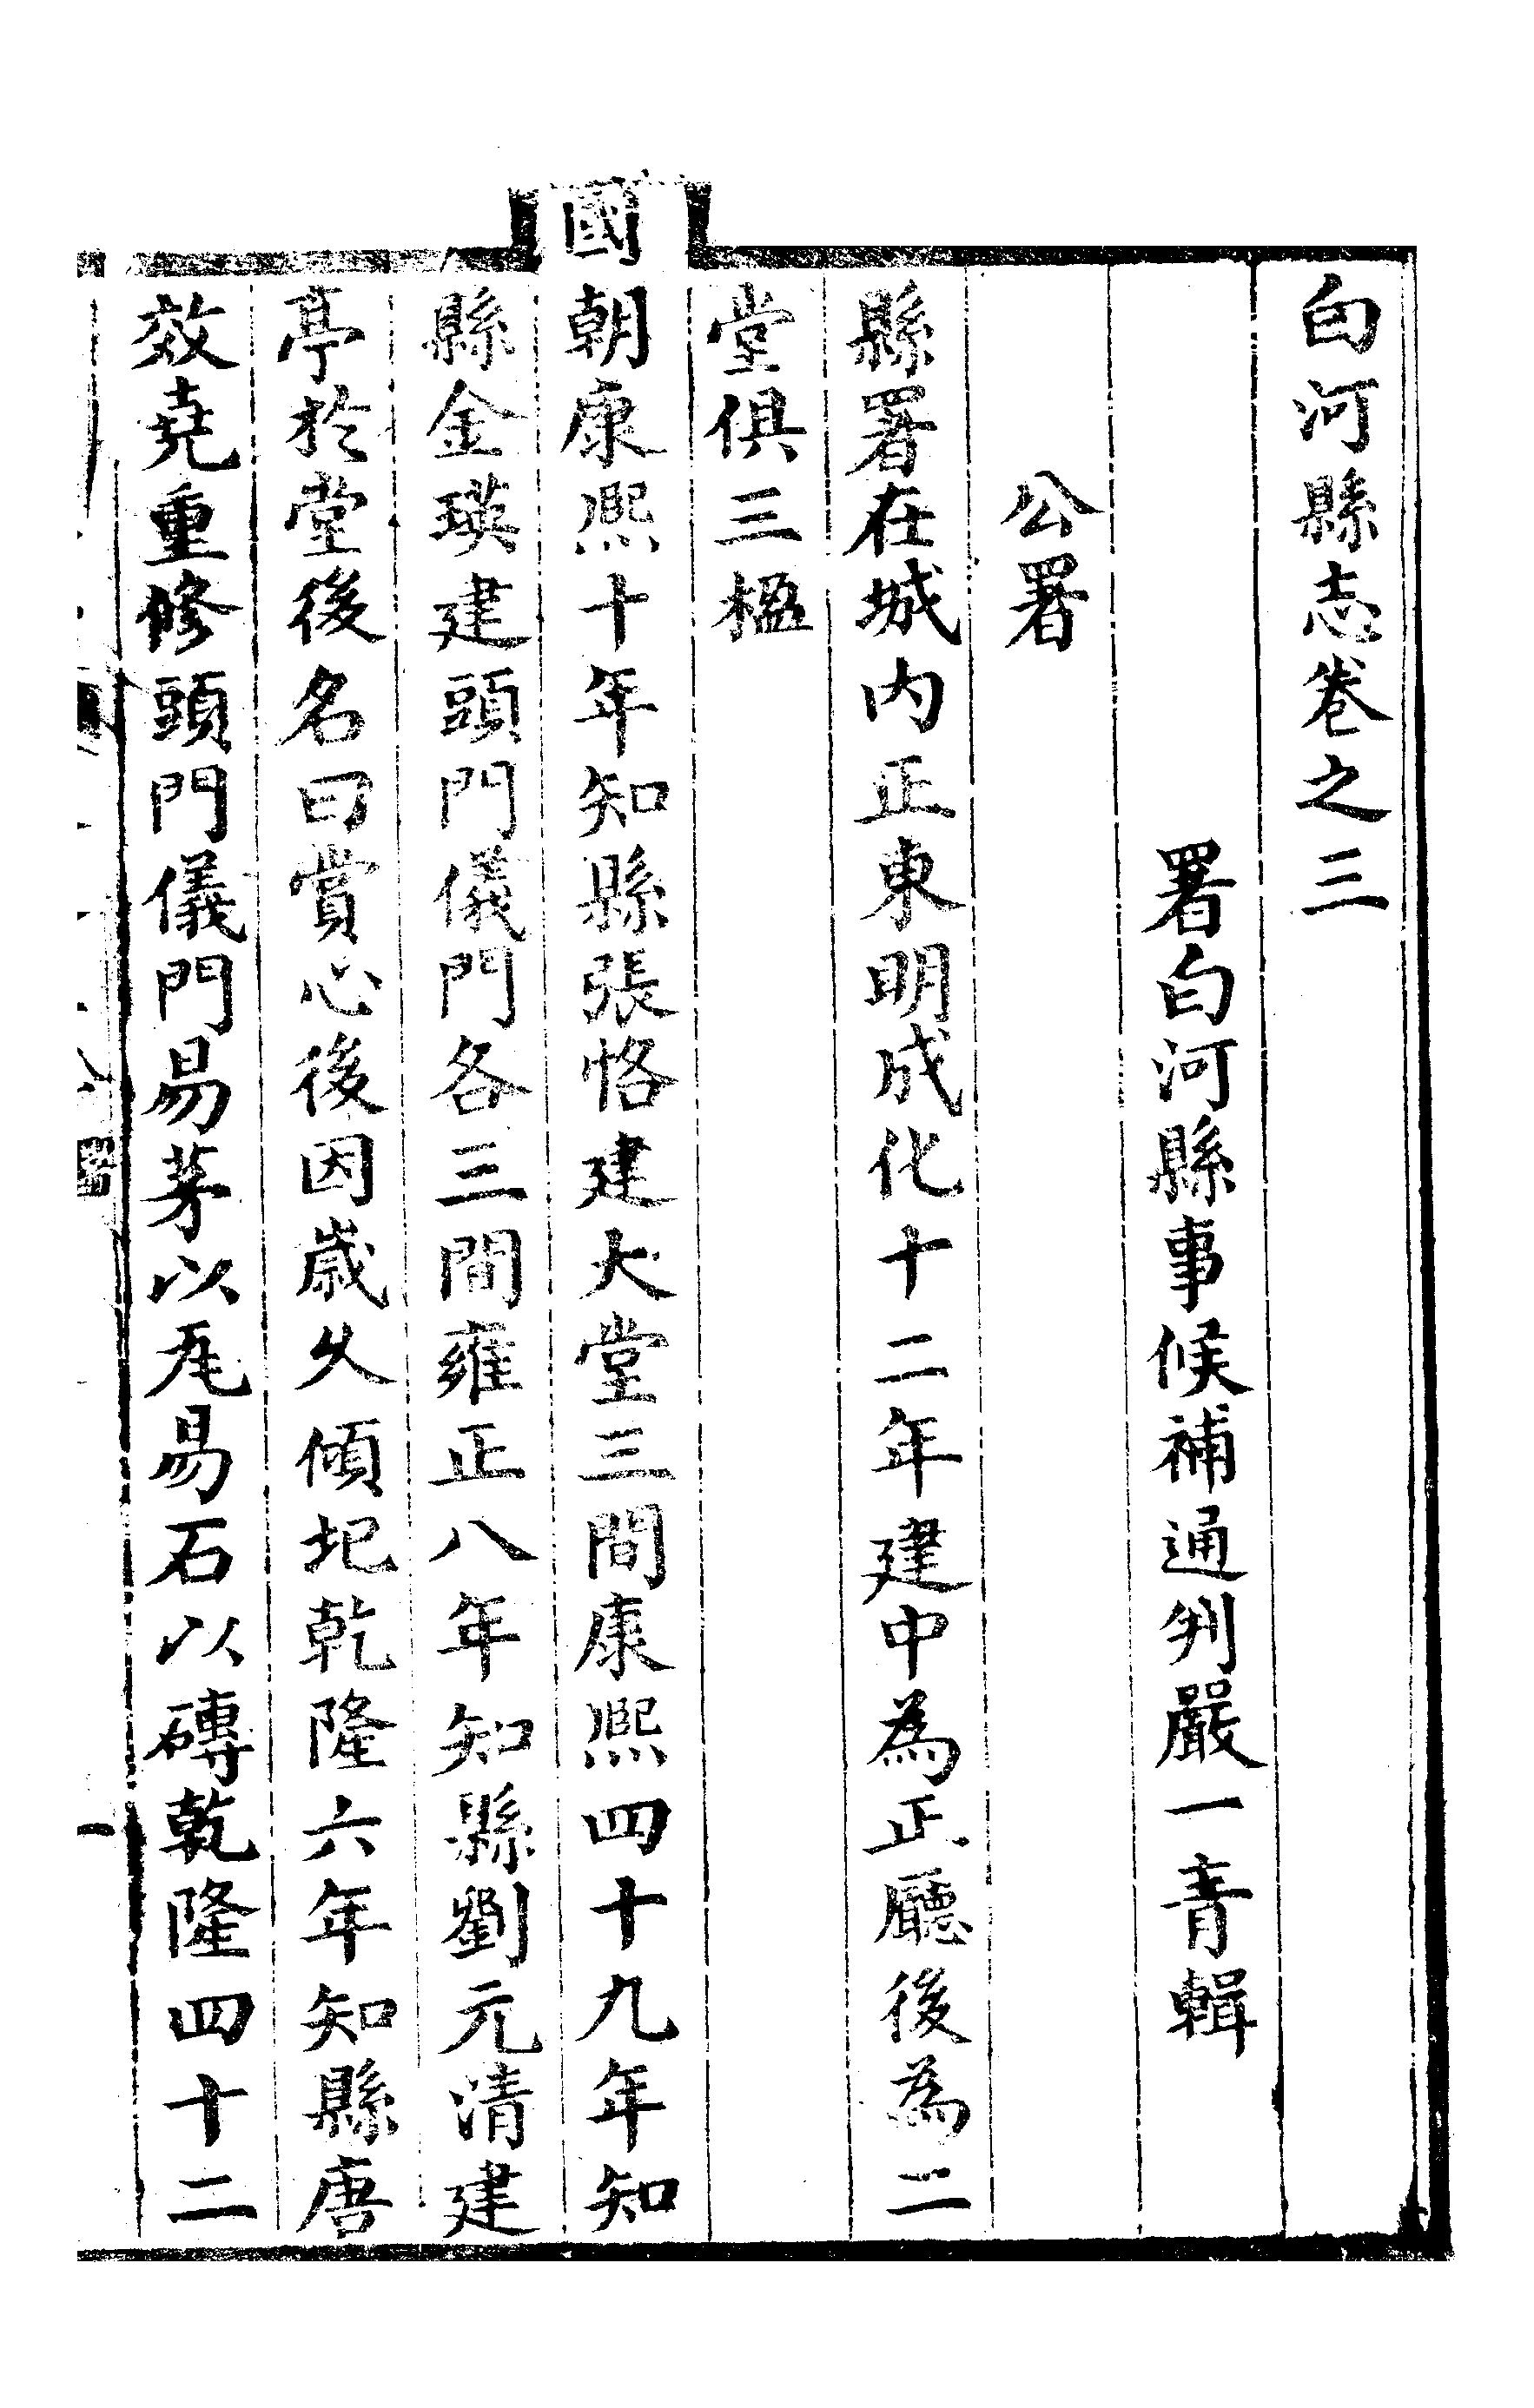 白河縣志卷之三
署白河縣事候補通判嚴一青輯
公署
縣署在城内正東明成化十二年建中為正廳後為二
堂俱三楹
國朝康熙十年知縣張恪建大堂三間康熙四十九年知
縣金瑛建頭門儀門各三間雍正八年知縣劉元清建
亭於堂後名曰賞心後因歲久傾圯乾隆六年知縣唐
效堯重修頭門儀門易茅以瓦易石以磚乾隆四十二